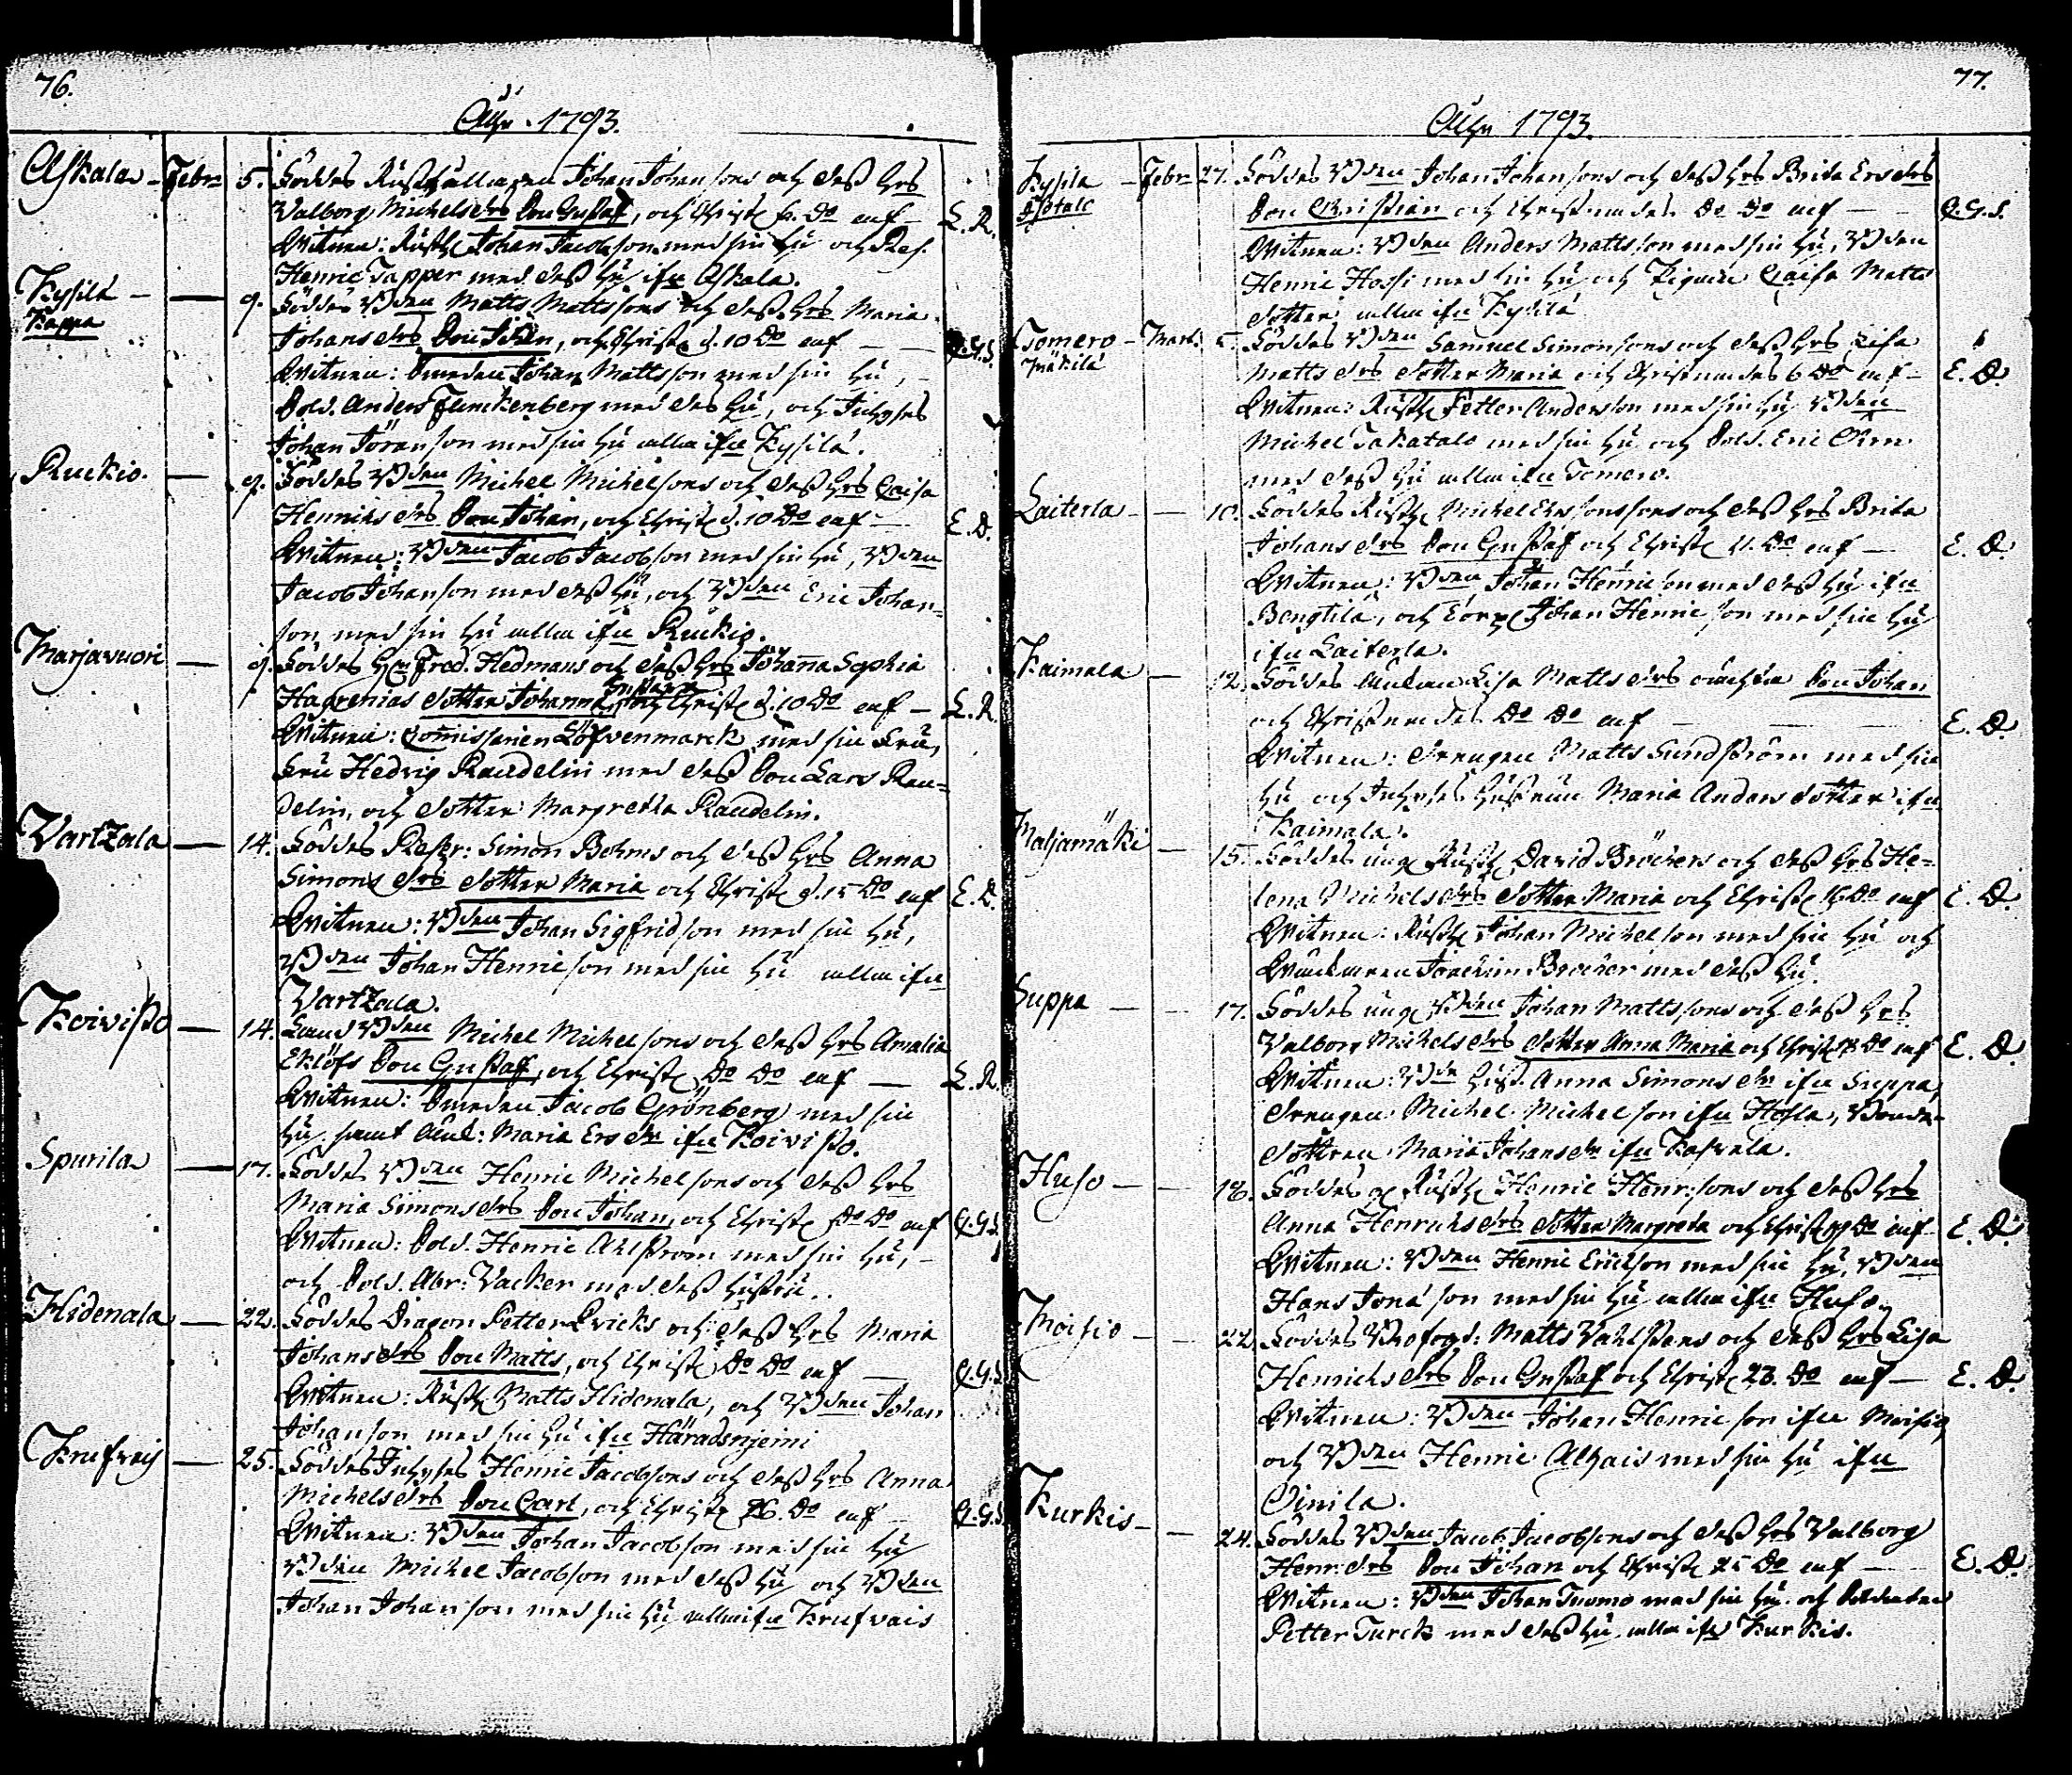 76.
Åhr 1793.
Askala - Febr: 5. Föddes Rusthållaren Johan Johansons och dess Hrs
Valborg Michelsdrs Son Gustaf, och Christ: Do enf - L. R.
Vitnen: Rusth: Johan Jacobson med sin Hu och Res.
Henric Tapper med dess Hu ifrn Askala.
Kysilä - 9. Föddes Bden Matts Mattssons och dess Hrs Maria
Kappa
Johansdrs Son Johan, och Christ: d. 10 Do enf - - Q.G.S.
Vitnen: Smeden Johan Mattsson med sin Hu, -
Sold. Anders Funckenberg med des Hu, och Inhyses
Johan Jöranson med sin Hu alla ifrn Kysilä.
Ruckio. - 9. Föddes Bden Michel Michelsons och dess Hrs Caisa
Henriksdrs Son Johan, och Christ: d. 10 Do enf - E. D.
Vitnen: Bden Jacob Jacobson med sin Hu, Bden
Jacob Johanson med dess Hu, och Bden Eric Johan=
son med sin Hu alla ifrn Ruckio.
Marjavuori - 9. Föddes Fred. Hedmans och dess Hrs Johanna Sophia
Hagrenias dotter Johanna Gustava och Christ: d. 10 Do enf - L. R.
Vitnen: Commissarien Löfvenmarck med sin Fru,
Fru Hedvig Randelin med dess Son Lars Ran=
delin, och dotter Margretha Randelin.
Vartzala - 14. Föddes Simon Bohms och dess Hrs Anna
Simons drs dotter Maria och Christ: d. 15 Do enf E. D.
Vitnen: Bden Johan Sigfridson med sin Hu,
Bden Johan Henricson med sin Hu alla ifrn
Vartzala.
Koivisto - 14. Bden Michel Michelsons och dess Hrs Amalia
Eklöfs Son Gustaff, och Christ: Do Do enf - L. R.
Vitnen: Smeden Jacob Grönberg med sin
Hu, samt Maria Ersdr ifrn Koivisto.
Spurila - 17. Föddes Bden Henric Michelsons och dess Hrs
Maria Simonsdrs Son Johan, och Christ: Do Do enf Q.G.S.
Vitnen: Sold. Henric Ahlström med sin Hu, -
och Sold. Abr: Vacker med dess Hustru.
Hidenala - 22. Föddes Dragon Petter Qvicks och dess Hrs Maria
Johansdrs Son Matts, och Christ: Do Do enf - Q.G.S.
Vitnen: Rusth: Matts Hidenala, och Bden Johan
Johanson med sin Hu ifrn Häradsnjemi
Krufvais - 25. Föddes Inhyses Henric Jacobsons och dess Hrs Anna
Michelsdrs Son Carl, och Christ: 26. Do enf - Q.G.S.
Vitnen: Bden Johan Jacobson med sin Hu
Bden Michel Jacobson med dess Hu och Bden
Johan Johanson med sin Hu alla ifrn Krufvais
77.
Åhr 1793.
Kysila - Febr: 27. Föddes Bden Johan Johansons och dess Hrs Brita Ersdrs
Son Christian och Christnades Do Do enf - - Q.G.S.
Vitnen: Bden Anders Mattsson med sin Hu, Bden
Henric Hossi med sin Hu och Pigan Caisa Matts
dotter alla ifrn Kysilä
Tomero - Mart: 5. Föddes Bden Samuel Simonsons och dess Hrs Lisa
Mäkilä
Matts drs dotter Maria och Christnades 6 Do enf - E. D.
Vitnen: Rusth: Petter Anderson med sin Hu Bden
Michel Takatalo med sin Hu och Sold. Eric
med dess Hu alla ifrn Tomero.
Laiterla - - 10. Föddes Rusth: Michel Ersons och dess Hrs Brita
Johansdrs Son Gustaf och Christ: 11. Do enf - E. D.
Vitnen: Bden Johan Henricson med dess Hu ifrn
Bengtilä, och Johan Henricson med sin Hu
ifrn Laiterla.
Kaimala - 12. Föddes Lisa Matts drs oächta Son Johan
och Christnades Do Do enf - - - E. D.
Vitnen: drengen Matts Sundström med sin
Hu och Inhyses Hustrun Maria Anders dotter ifrn
Kaimala.
Maljamäki - 15. Föddes ung Rusth: David Bröckers och dess Hrs He=
lena Michelsdrs dotter Maria och Christ: 16 Do enf E. D.
Vitnen: Rusth: Johan Michelson med sin Hu och
Joachim Bröcker med dess Hu.
Suppa - - 17. Föddes ung Bden Johan Mattssons och dess Hrs
Valborg Michelsdrs dotter Anna Maria och Christ: 18 Do enf E. D.
Vitnen: Bde Hust. Anna Simonsdr ifrn Suppa,
drengen Michel Michelson ifrn Hofla, Bonde-
dottren Maria Johansdr ifrn Kaskala.
Huso - - 18. Föddes Rusth: Henric Henr:sons och dess Hrs
Anna Henrichsdrs dotter Margreta och Christ: 19 Do enf E. D.
Vitnen: Bden Henric Ericsson med sin Hu, Bden
Hans Jona son med sin Hu alla ifrn Huso.
Moisio - - 22. Föddes Matts Vahlstens och dess Hrs Lisa
Henrichsdrs Son Gustaf och Christ: 23. Do enf - E. D.
Vitnen: Bden Johan Henric son ifrn Moisio,
och Bden Henric Alhais med sin Hu ifrn
Vinila.
Kurkis - - 24. Föddes Bden Jacob Jacobsons och dess Hrs Valborg
Henr:drs Son Johan och Christ: 25 Do enf - E. D.
Vitnen: Bden Johan Tuomo med sin Hu och Soldaten
Petter Turck med dess Hu alla ifrn Kurkis.